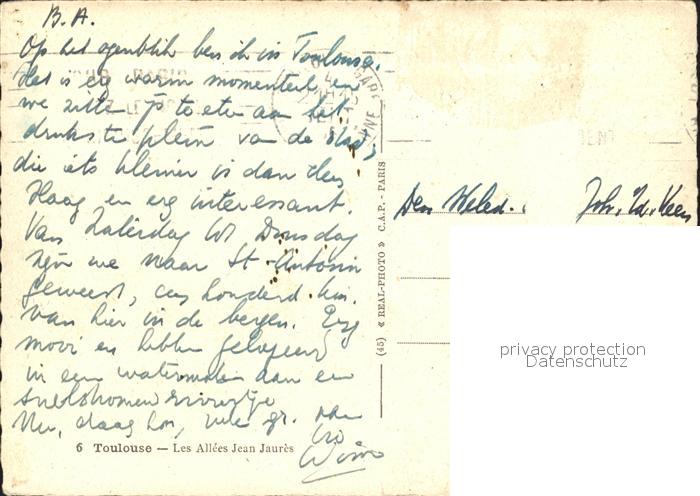 B.A.
Op het ogenblik ben ik in Toulouse.
Het is erg warm momenteel en
we zitten te eten aan het
drukste plein van de stad,
die iets kleiner is dan Den
Haag en erg interessant.
Van Zaterdag tot Dinsdag
zijn we naar St. Antonin
geweest, een honderd km.
van hier in de bergen. Erg
mooi en hebben gelogeerd
in een watermolen aan een
snelstromend riviertje
Nu, daag hoor, vele gr. van
6 Toulouse — Les Allées Jean Jaurès
(45) « REAL-PHOTO » C.A.P. - PARIS
Den Weled. Joh.
privacy protection
Datenschutz